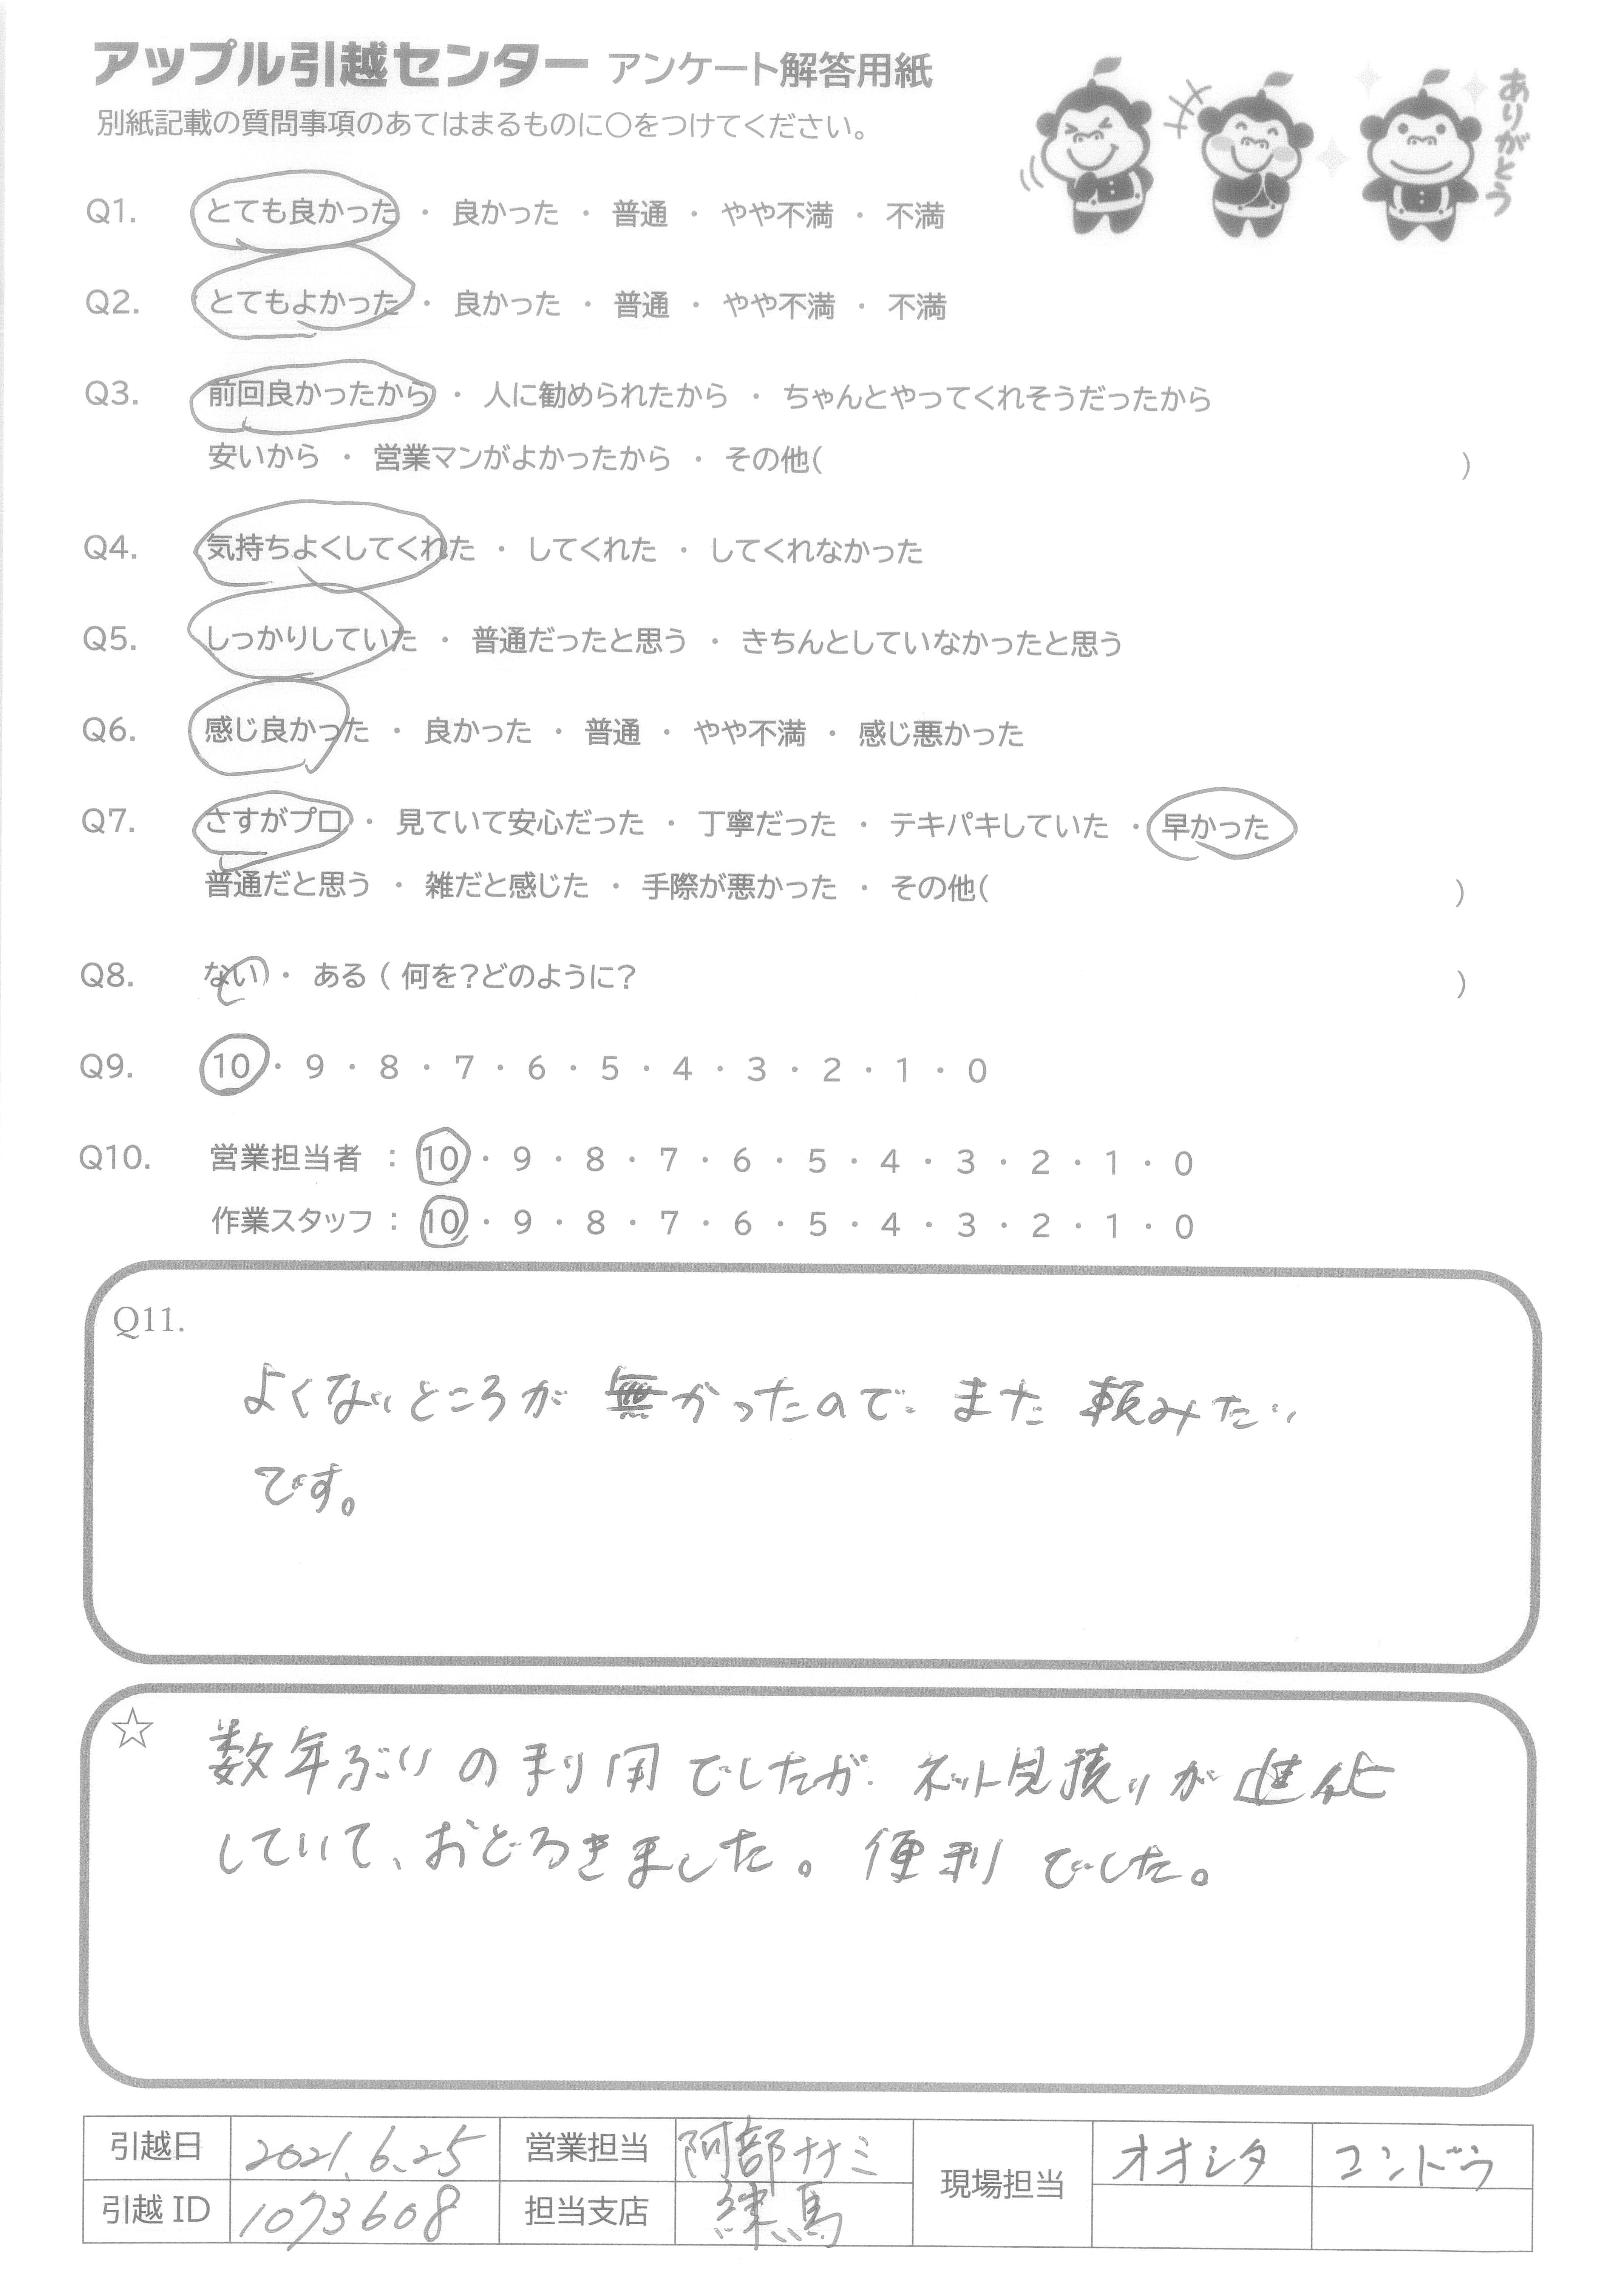 アップル引越センター アンケート解答用紙
別紙記載の質問事項のあてはまるものに○をつけてください。
ありがとう
Q1. とても良かった ・ 良かった ・ 普通 ・ やや不満 ・ 不満
Q2. とてもよかった ・ 良かった ・ 普通 ・ やや不満 ・ 不満
Q3. 前回良かったから ・ 人に勧められたから ・ ちゃんとやってくれそうだったから
安いから ・ 営業マンがよかったから ・ その他( )
Q4. 気持ちよくしてくれた ・ してくれた ・ してくれなかった
Q5. しっかりしていた ・ 普通だったと思う ・ きちんとしていなかったと思う
Q6. 感じ良かった ・ 良かった ・ 普通 ・ やや不満 ・ 感じ悪かった
Q7. さすがプロ ・ 見ていて安心だった ・ 丁寧だった ・ テキパキしていた ・ 早かった
普通だと思う ・ 雑だと感じた ・ 手際が悪かった ・ その他( )
Q8. ない ・ ある ( 何を?どのように? )
Q9. 10 ・ 9 ・ 8 ・ 7 ・ 6 ・ 5 ・ 4 ・ 3 ・ 2 ・ 1 ・ 0
Q10. 営業担当者 : 10 ・ 9 ・ 8 ・ 7 ・ 6 ・ 5 ・ 4 ・ 3 ・ 2 ・ 1 ・ 0
作業スタッフ : 10 ・ 9 ・ 8 ・ 7 ・ 6 ・ 5 ・ 4 ・ 3 ・ 2 ・ 1 ・ 0
Q11.
よくないところが 無かったので また 頼みたい
です。
☆ 数年ぶりの利用でしたが ネット見積りが進化
していて、おどろきました。便利でした。
引越日 2021.6.25 営業担当 阿部ナナミ 現場担当 オオシタ コンドウ
引越 ID 1073608 担当支店 練馬